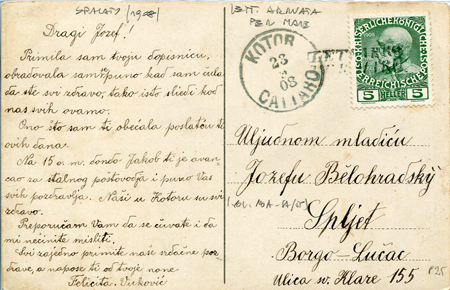 SPALATO (1908)
Dragi Jozef!
Primila sam tvoju dopisnicu,
obradovala sam se puno kad sam čula
da ste svi zdravo, tako isto sliedi kod
nas svih ovamo.
Ono što sam ti obećala poslaću te
ovih dana.
Na 15 o. m. Jakob ti je avan-
cao za stalnog i puno Vas
svih pozdravlja. Naši u Kotoru su svi
zdravo.
Preporučam Vam da se čuvate i da
mi nečinite misliti.
Svi zajedno primite naše srdačne poz-
drave, a napose ti od tvoje none
Felicita Vuković
ARRIVATA
PER MARE
KOTOR
23
08
CATTARO
5 HELLER 5
Uljudnom mladiću
Jozefu Bělohradský
Spljet
Borgo-Lučac
Ulica sv. Klare 155